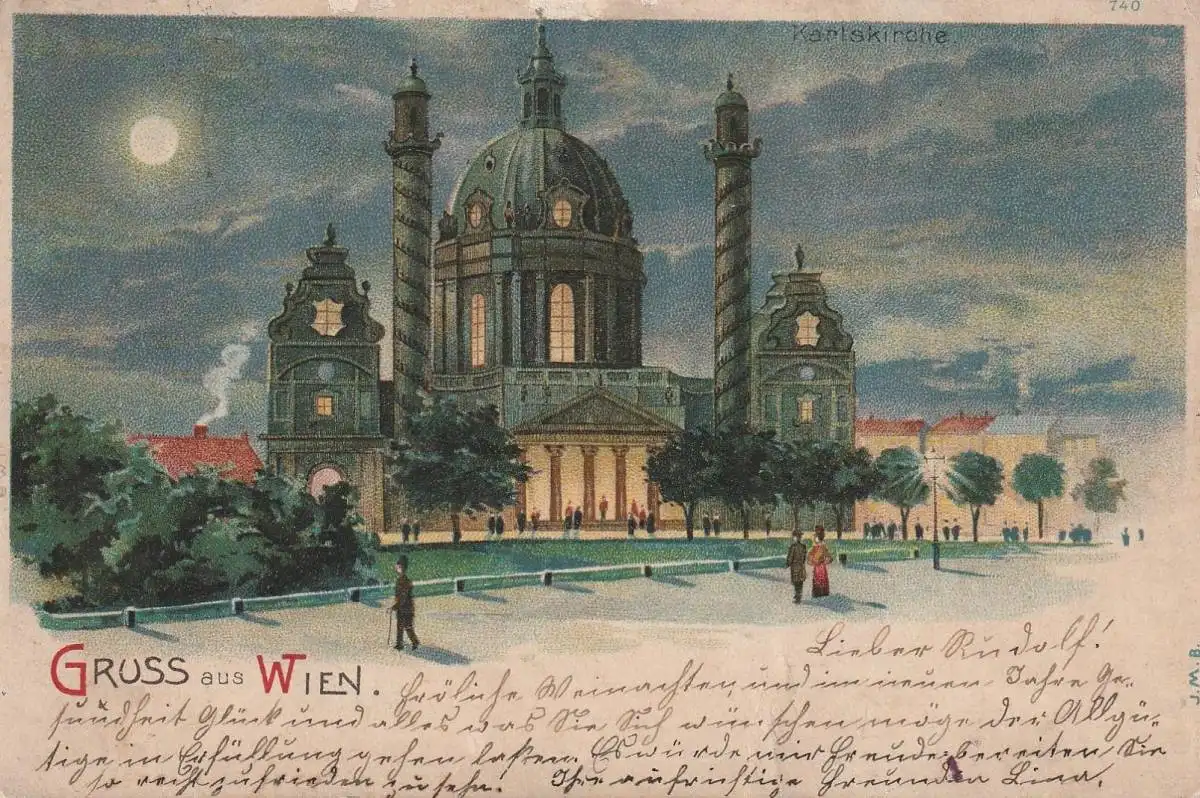 740
Karlskirche.
V.W.B.
GRUSS AUS WIEN.
Lieber Rudolf!
Fröliche Weinachten, und im neuen Jahre Ge-
sundheit Glück und alles was Sie Sich wünschen möge der Allgü-
tige in Erfüllung gehen laßen. Es würde mir Freude bereiten Sie
so recht zufrieden zu sehn. Ihre aufrichtige Freundin Lina.